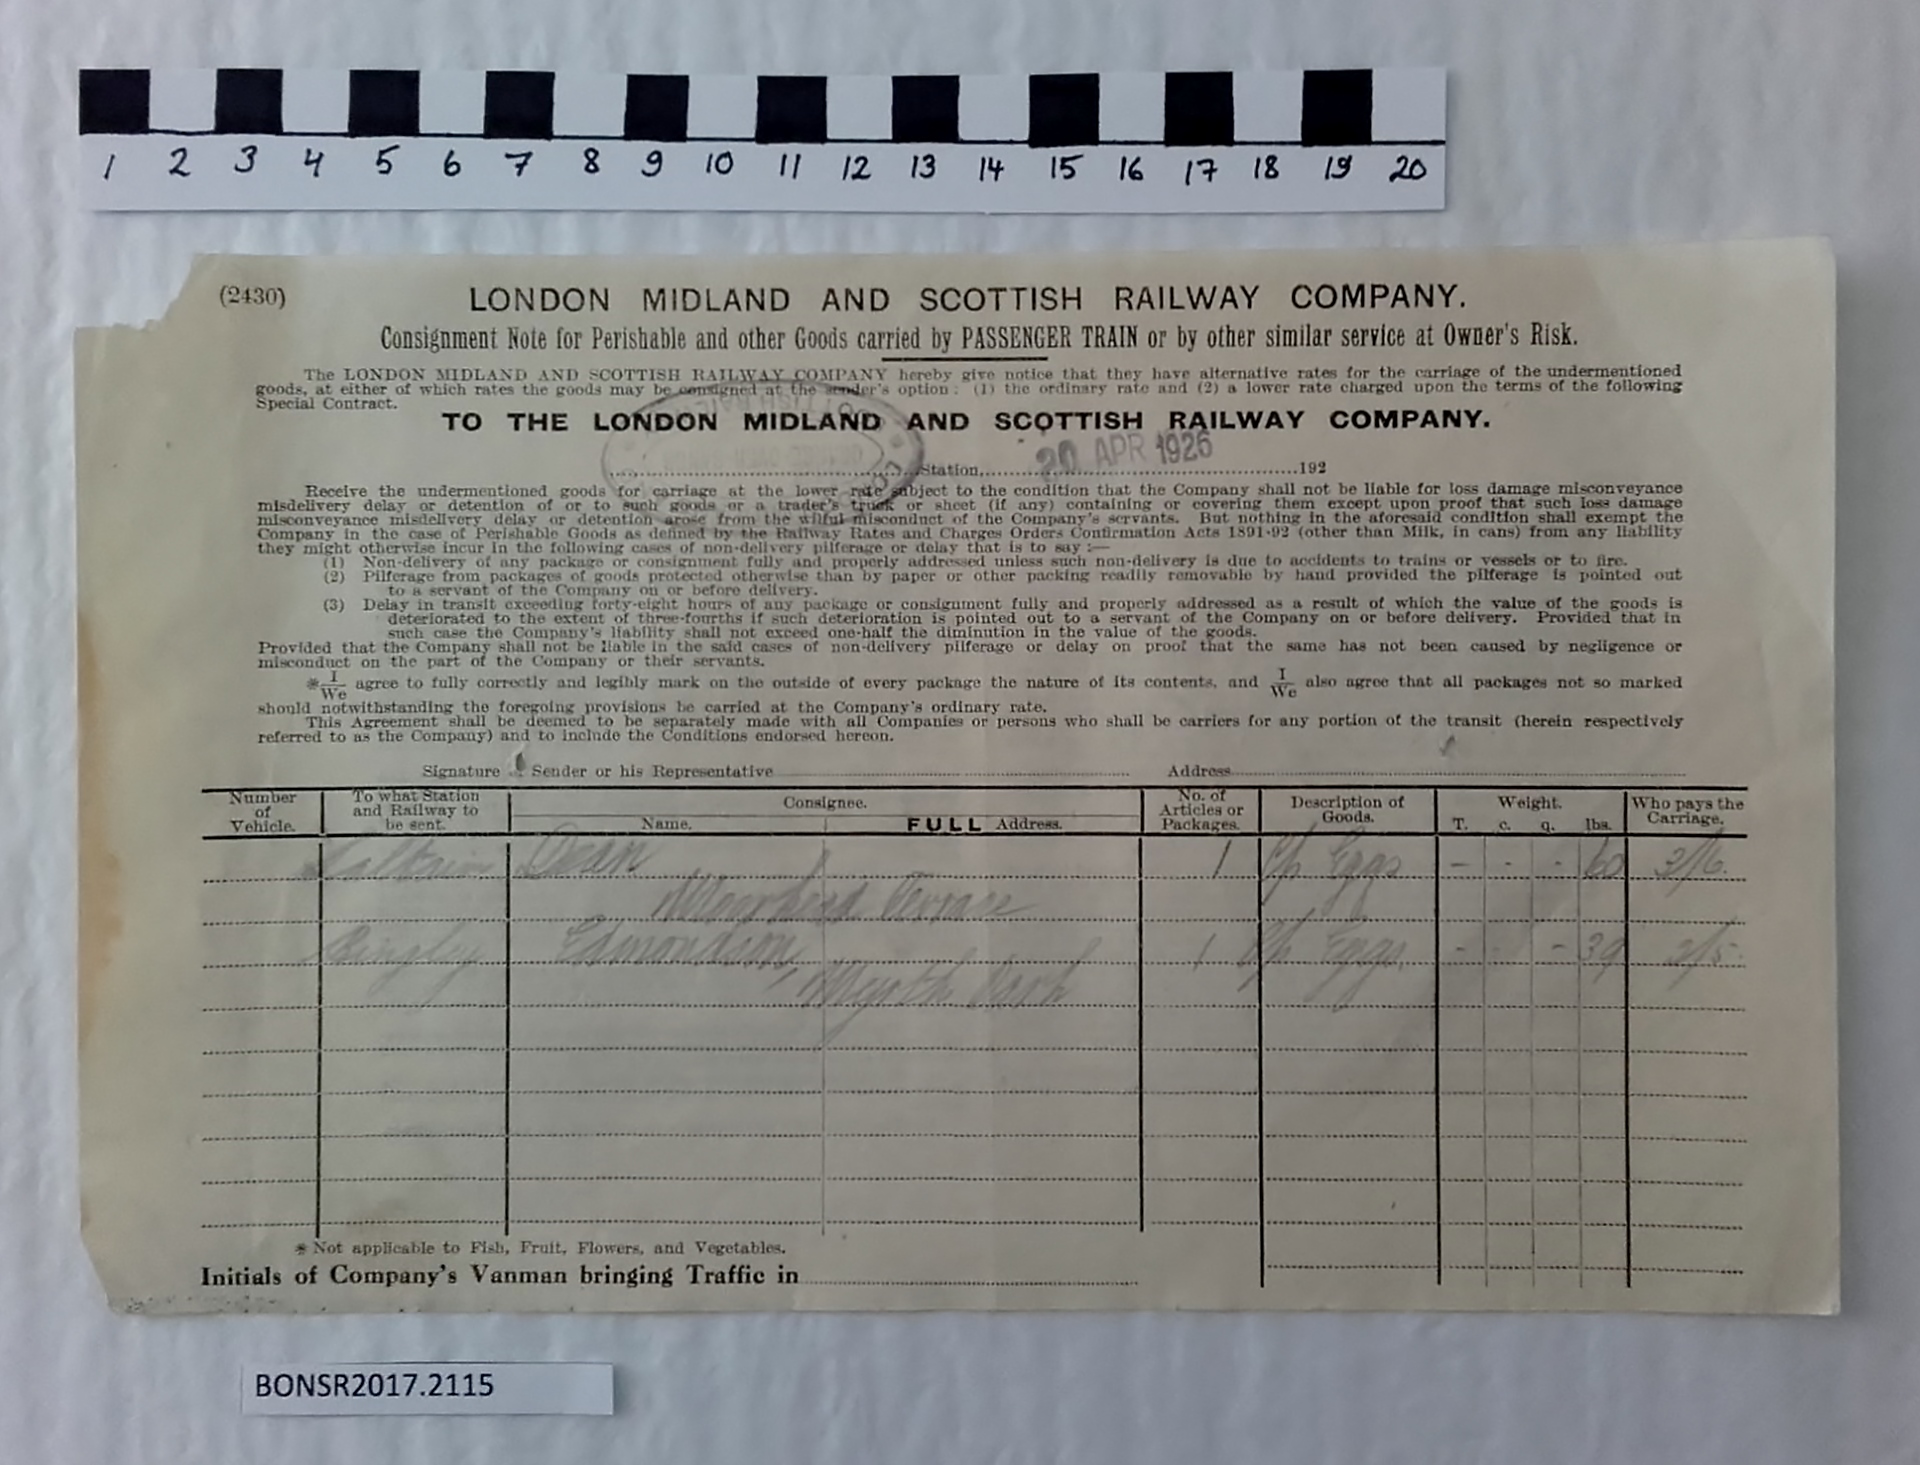 1 2 3 4 5 6 7 8 9 10 11 12 13 14 15 16 17 18 19 20
(2430)
LONDON MIDLAND AND SCOTTISH RAILWAY COMPANY.
Consignment Note for Perishable and other Goods carried by PASSENGER TRAIN or by other similar service at Owner's Risk.
The LONDON MIDLAND AND SCOTTISH RAILWAY COMPANY hereby give notice that they have alternative rates for the carriage of the undermentioned
goods, at either of which rates the goods may be consigned at the sender's option: (1) the ordinary rate and (2) a lower rate charged upon the terms of the following
Special Contract.
TO THE LONDON MIDLAND AND SCOTTISH RAILWAY COMPANY.
Station 20 APR 1926 192
Receive the undermentioned goods for carriage at the lower rate subject to the condition that the Company shall not be liable for loss damage misconveyance
misdelivery delay or detention of or to such goods or a trader's truck or sheet (if any) containing or covering them except upon proof that such loss damage
misconveyance misdelivery delay or detention arose from the wilful misconduct of the Company's servants. But nothing in the aforesaid condition shall exempt the
Company in the case of Perishable Goods as defined by the Railway Rates and Charges Orders Confirmation Acts 1891-92 (other than Milk, in cans) from any liability
they might otherwise incur in the following cases of non-delivery pilferage or delay that is to say:—
(1) Non-delivery of any package or consignment fully and properly addressed unless such non-delivery is due to accidents to trains or vessels or to fire.
(2) Pilferage from packages of goods protected otherwise than by paper or other packing readily removable by hand provided the pilferage is pointed out
to a servant of the Company on or before delivery.
(3) Delay in transit exceeding forty-eight hours of any package or consignment fully and properly addressed as a result of which the value of the goods is
deteriorated to the extent of three-fourths if such deterioration is pointed out to a servant of the Company on or before delivery. Provided that in
such case the Company's liability shall not exceed one-half the diminution in the value of the goods.
Provided that the Company shall not be liable in the said cases of non-delivery pilferage or delay on proof that the same has not been caused by negligence or
misconduct on the part of the Company or their servants.
* I/We agree to fully correctly and legibly mark on the outside of every package the nature of its contents, and I/We also agree that all packages not so marked
should notwithstanding the foregoing provisions be carried at the Company's ordinary rate.
This Agreement shall be deemed to be separately made with all Companies or persons who shall be carriers for any portion of the transit (herein respectively
referred to as the Company) and to include the Conditions endorsed hereon.
Signature Sender or his Representative Address
Number of Vehicle. To what Station and Railway to be sent. Consignee. Name. FULL Address. No. of Articles or Packages. Description of Goods. Weight. T. c. q. lbs. Who pays the Carriage.
Dean 1 Eggs - - - 60
Moorhead Terrace
Bingley Edmondson, 1 Eggs - - - 39
* Not applicable to Fish, Fruit, Flowers, and Vegetables.
Initials of Company's Vanman bringing Traffic in
BONSR2017.2115